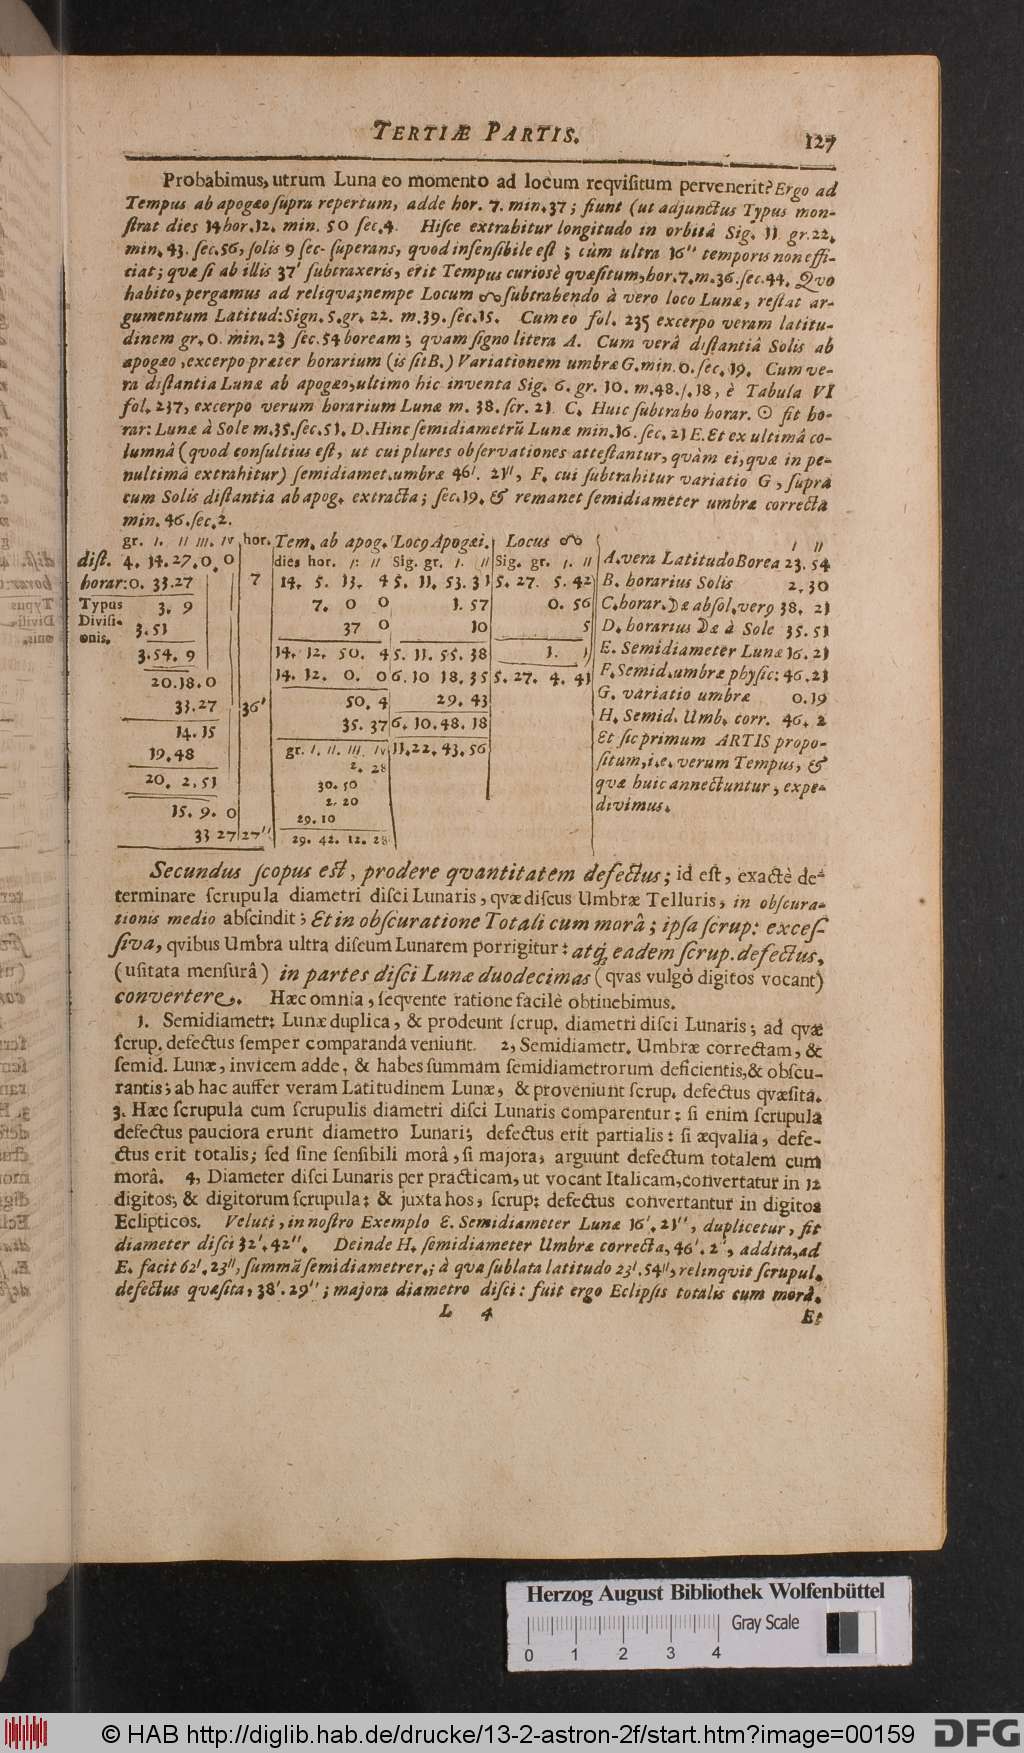 TERTIÆ PARTIS. 127
Probabimus, utrum Luna eo momento ad locum reqviſitum pervenerit? Ergo ad
Tempus ab apogæo ſupra repertum, adde hor. 7. min. 37; fiunt (ut adjunctus Typus mon-
ſtrat dies 14 hor. 12. min. 50 ſec. 4. Hiſce extrahitur longitudo in orbitâ Sig. 11 gr. 22.
min. 43. ſec. 56, ſolis 9 ſec- ſuperans, quod inſenſibile eſt; cùm ultra 16'' temporis non effi-
ciat; quæ ſi ab illis 37' ſubtraxeris, erit Tempus curioſè quæſitum, hor. 7. m. 36. ſec. 44. Quo
habito, pergamus ad reliqva; nempe Locum ☊ ſubtrahendo à vero loco Lunæ, reſtat ar-
gumentum Latitud: Sign. 5. gr. 22. m. 39. ſec. 15. Cum eo fol. 235 excerpo veram latitu-
dinem gr. 0. min. 23 ſec. 54 boream; quam ſigno litera A. Cum verâ diſtantiâ Solis ab
apogæo, excerpo præter horarium (is ſit B.) Variationem umbræ G. min. 0. ſec. 19. Cum ve-
ra diſtantia Lunæ ab apogæo, ultimo hic inventa Sig. 6. gr. 10. m. 48. ſ. 18, è Tabula VI
fol. 237, excerpo verum horarium Lunæ m. 38. ſcr. 21. C. Huic ſubtraho horar. ☉ fit ho-
rar: Lunæ à Sole m. 35. ſec. 51. D. Hinc ſemidiametrũ Lunæ min. 16. ſec. 21 E. Et ex ultimâ co-
lumnâ (quod conſultius eſt, ut cui plures obſervationes atteſtantur, quàm ei, quæ in pe-
nultimâ extrahitur) ſemidiamet. umbræ 46'. 21'', F. cui ſubtrahitur variatio G, ſupra
cum Solis diſtantia ab apog. extracta; ſec. 19. & remanet ſemidiameter umbræ correcta
min. 46. ſec. 2.
gr. I. II III. IV hor. Tem. ab apog. Locꝰ Apogæi. Locus ☊ I II
diſt. 4. 14. 27. 0. 0 dies hor. I: II Sig. gr. I. II Sig. gr. I. II A. vera Latitudo Borea 23. 54
horar: 0. 33. 27 7 14. 5. 13. 4 5. 11. 53. 31 5. 27. 5. 42 B. horarius Solis 2. 30
Typus 3. 9 7. 0 0 1. 57 0. 56 C. horar. ☽æ abſol. verꝰ 38. 21
Diviſi- 3. 51 37 0 10 5 D. horarius ☽æ à Sole 35. 51
onis. 3. 54. 9 14. 12. 50. 4 5. 11. 55. 38 1. 1 E. Semidiameter Lunæ 16. 21
20. 18. 0 14. 12. 0. 0 6. 10 18. 35 5. 27. 4. 41 F. Semid. umbræ phyſic: 46. 21
33. 27 36' 50. 4 29. 43 G. variatio umbræ 0. 19
14. 15 35. 37 6. 10. 48. 18 H. Semid. Umb. corr. 46. 2
19. 48 gr. I. II. III. IV 11. 22. 43. 56 Et ſic primum ARTIS propo-
20. 2. 51 2. 28 ſitum, i. e. verum Tempus, &
15. 9. 0 30. 50 quæ huic annectuntur, expe-
33 27 27'' 2. 20 divimus.
29. 10
29. 42. 12. 28
Secundus ſcopus eſt, prodere qvantitatem defectus; id eſt, exactè de-
terminare ſcrupula diametri diſci Lunaris, qvæ diſcus Umbræ Telluris, in obſcura-
tionis medio abſcindit; Et in obſcuratione Totali cum morâ; ipſa ſcrup: exceſ-
ſiva, qvibus Umbra ultra diſcum Lunarem porrigitur: atq; eadem ſcrup. defectus,
(uſitata menſurâ) in partes diſci Lunæ duodecimas (qvas vulgò digitos vocant)
convertere. Hæc omnia, ſeqvente ratione facilè obtinebimus.
1. Semidiametr: Lunæ duplica, & prodeunt ſcrup. diametri diſci Lunaris; ad qvæ
ſcrup. defectus ſemper comparanda veniunt. 2, Semidiametr. Umbræ correctam, &
ſemid. Lunæ, invicem adde, & habes ſummam ſemidiametrorum deficientis, & obſcu-
rantis; ab hac auffer veram Latitudinem Lunæ, & proveniunt ſcrup. defectus qvæſita.
3. Hæc ſcrupula cum ſcrupulis diametri diſci Lunaris comparentur: ſi enim ſcrupula
defectus pauciora erunt diametro Lunari; defectus erit partialis: ſi æqvalia, defe-
ctus erit totalis; ſed ſine ſenſibili morâ, ſi majora, arguunt defectum totalem cum
morâ. 4, Diameter diſci Lunaris per practicam, ut vocant Italicam, convertatur in 12
digitos; & digitorum ſcrupula: & juxta hos, ſcrup: defectus convertantur in digitos
Eclipticos. Veluti, in noſtro Exemplo E. Semidiameter Lunæ 16'. 21'', duplicetur, fit
diameter diſci 32'. 42''. Deinde H. ſemidiameter Umbræ correcta, 46'. 2', addita, ad
E. facit 62'. 23'', ſummã ſemidiametrer.; à qva ſublata latitudo 23'. 54'', relinqvit ſcrupul.
defectus quæſita, 38'. 29''; majora diametro diſci: fuit ergo Eclipſis totalis cum morâ.
L 4 Et
Herzog August Bibliothek Wolfenbüttel
Gray Scale
0 1 2 3 4
© HAB http://diglib.hab.de/drucke/13-2-astron-2f/start.htm?image=00159 DFG